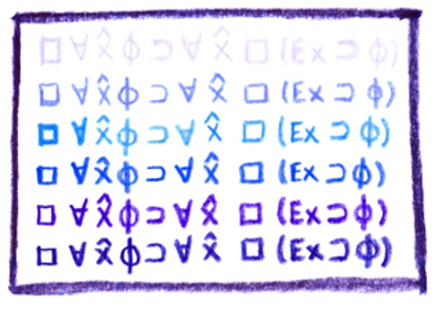 □ ∀x̂ϕ ⊃ ∀x̂ □ (Ex ⊃ ϕ)
□ ∀x̂ϕ ⊃ ∀x̂ □ (Ex ⊃ ϕ)
□ ∀x̂ϕ ⊃ ∀x̂ □ (Ex ⊃ ϕ)
□ ∀x̂ϕ ⊃ ∀x̂ □ (Ex ⊃ ϕ)
□ ∀x̂ϕ ⊃ ∀x̂ □ (Ex ⊃ ϕ)
□ ∀x̂ϕ ⊃ ∀x̂ □ (Ex ⊃ ϕ)